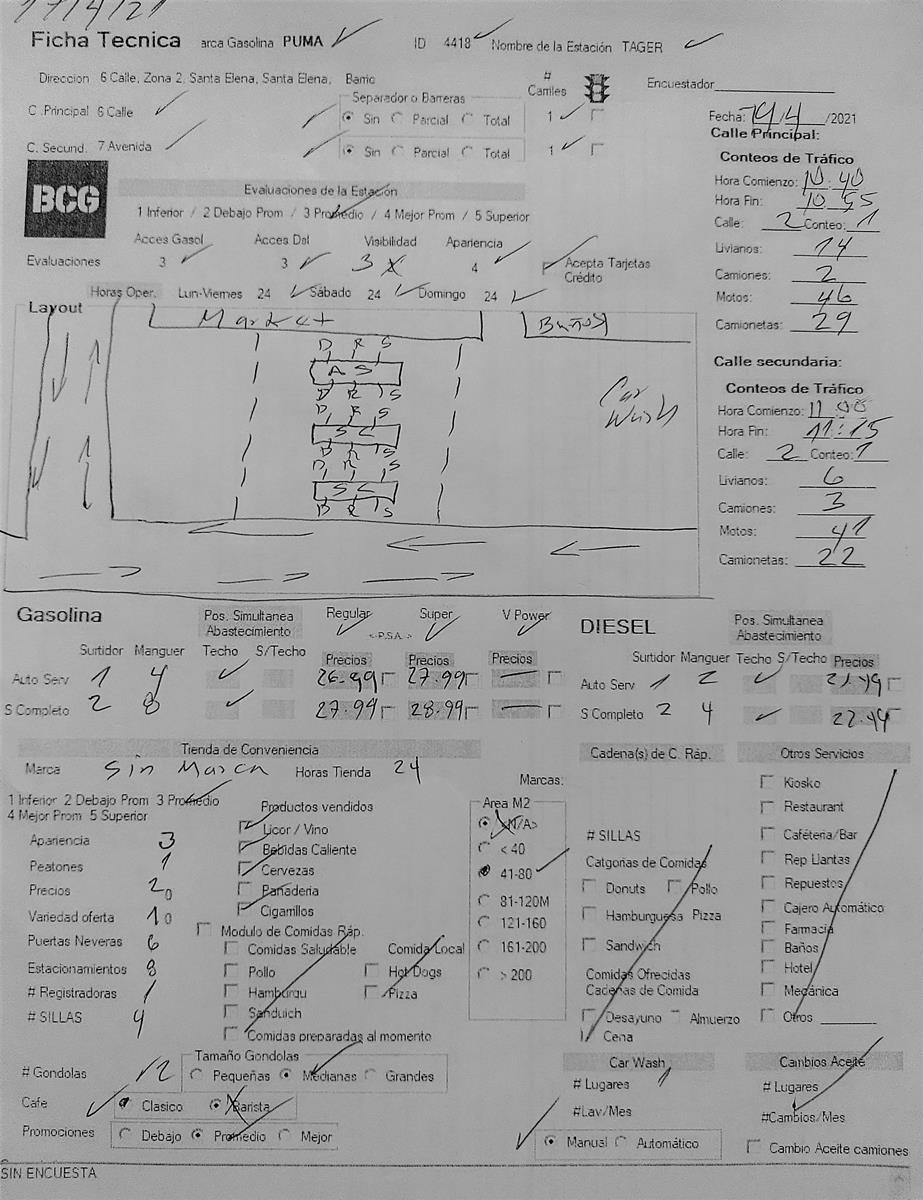 17/4/21
Ficha Tecnica arca Gasolina PUMA ID 4418 Nombre de la Estación TAGER
Direccion 6 Calle, Zona 2, Santa Elena, Santa Elena, Barrio # Carriles Encuestador
Separador o Barreras
C .Principal 6 Calle Sin Parcial Total 1
Fecha: /4/2021
C. Secund. 7 Avenida Sin Parcial Total 1
Calle Principal:
Conteos de Tráfico
Hora Comienzo: 10:40
Hora Fin: 10:55
Calle: 2 Conteo: 1
Livianos: 14
Camiones: 2
Motos: 46
Camionetas: 29
Calle secundaria:
Conteos de Tráfico
Hora Comienzo: 11:00
Hora Fin: 11:15
Calle: 2 Conteo: 1
Livianos: 6
Camiones: 3
Motos: 41
Camionetas: 22
BCG
Evaluaciones de la Estación
1 Inferior / 2 Debajo Prom / 3 Promedio / 4 Mejor Prom / 5 Superior
Acces Gasol Acces Dsl Visibilidad Apariencia
Evaluaciones 3 3 3 4 Acepta Tarjetas
Crédito
Horas Oper. Lun-Viernes 24 Sábado 24 Domingo 24
Layout
Market Baños
D R S
A S
D R S
D R S
S C
D R S
D R S
S C
D R S
Car
Wash
Gasolina
Pos. Simultanea
Abastecimiento
Regular <-P.S.A.-> Super V Power
Surtidor Manguer Techo S/Techo Precios Precios Precios
Auto Serv 1 4 26.99 27.99
S Completo 2 8 27.99 28.99
DIESEL
Pos. Simultanea
Abastecimiento
Surtidor Manguer Techo S/Techo Precios
Auto Serv 1 2 21.49
S Completo 2 4 22.49
Tienda de Conveniencia
Marca Sin Marca Horas Tienda 24
1 Inferior 2 Debajo Prom 3 Promedio
4 Mejor Prom 5 Superior
Apariencia 3
Peatones 1
Precios 20
Variedad oferta 10
Puertas Neveras 6
Estacionamientos 8
# Registradoras 1
# SILLAS 4
# Gondolas 12
Productos vendidos
Licor / Vino
Bebidas Caliente
Cervezas
Panaderia
Cigarrillos
Modulo de Comidas Ráp.
Comidas Saludable Comida Local
Pollo Hot Dogs
Hamburgu Pizza
Sanduich
Comidas preparadas al momento
Marcas:
Area M2
<N/A>
< 40
41-80
81-120M
121-160
161-200
> 200
Tamaño Gondolas
Pequeñas Medianas Grandes
Cafe Clasico Barista
Promociones Debajo Promedio Mejor
Cadena(s) de C. Ráp.
# SILLAS
Catgorias de Comidas
Donuts Pollo
Hamburguesa Pizza
Sandwich
Comidas Ofrecidas
Cadenas de Comida
Desayuno Almuerzo
Cena
Otros Servicios
Kiosko
Restaurant
Caféteria/Bar
Rep Llantas
Repuestos
Cajero Automático
Farmacia
Baños
Hotel
Mecánica
Otros
Car Wash
# Lugares 1
#Lav/Mes
Manual Automático
Cambios Aceite
# Lugares
#Cambios/Mes
Cambio Aceite camiones
SIN ENCUESTA